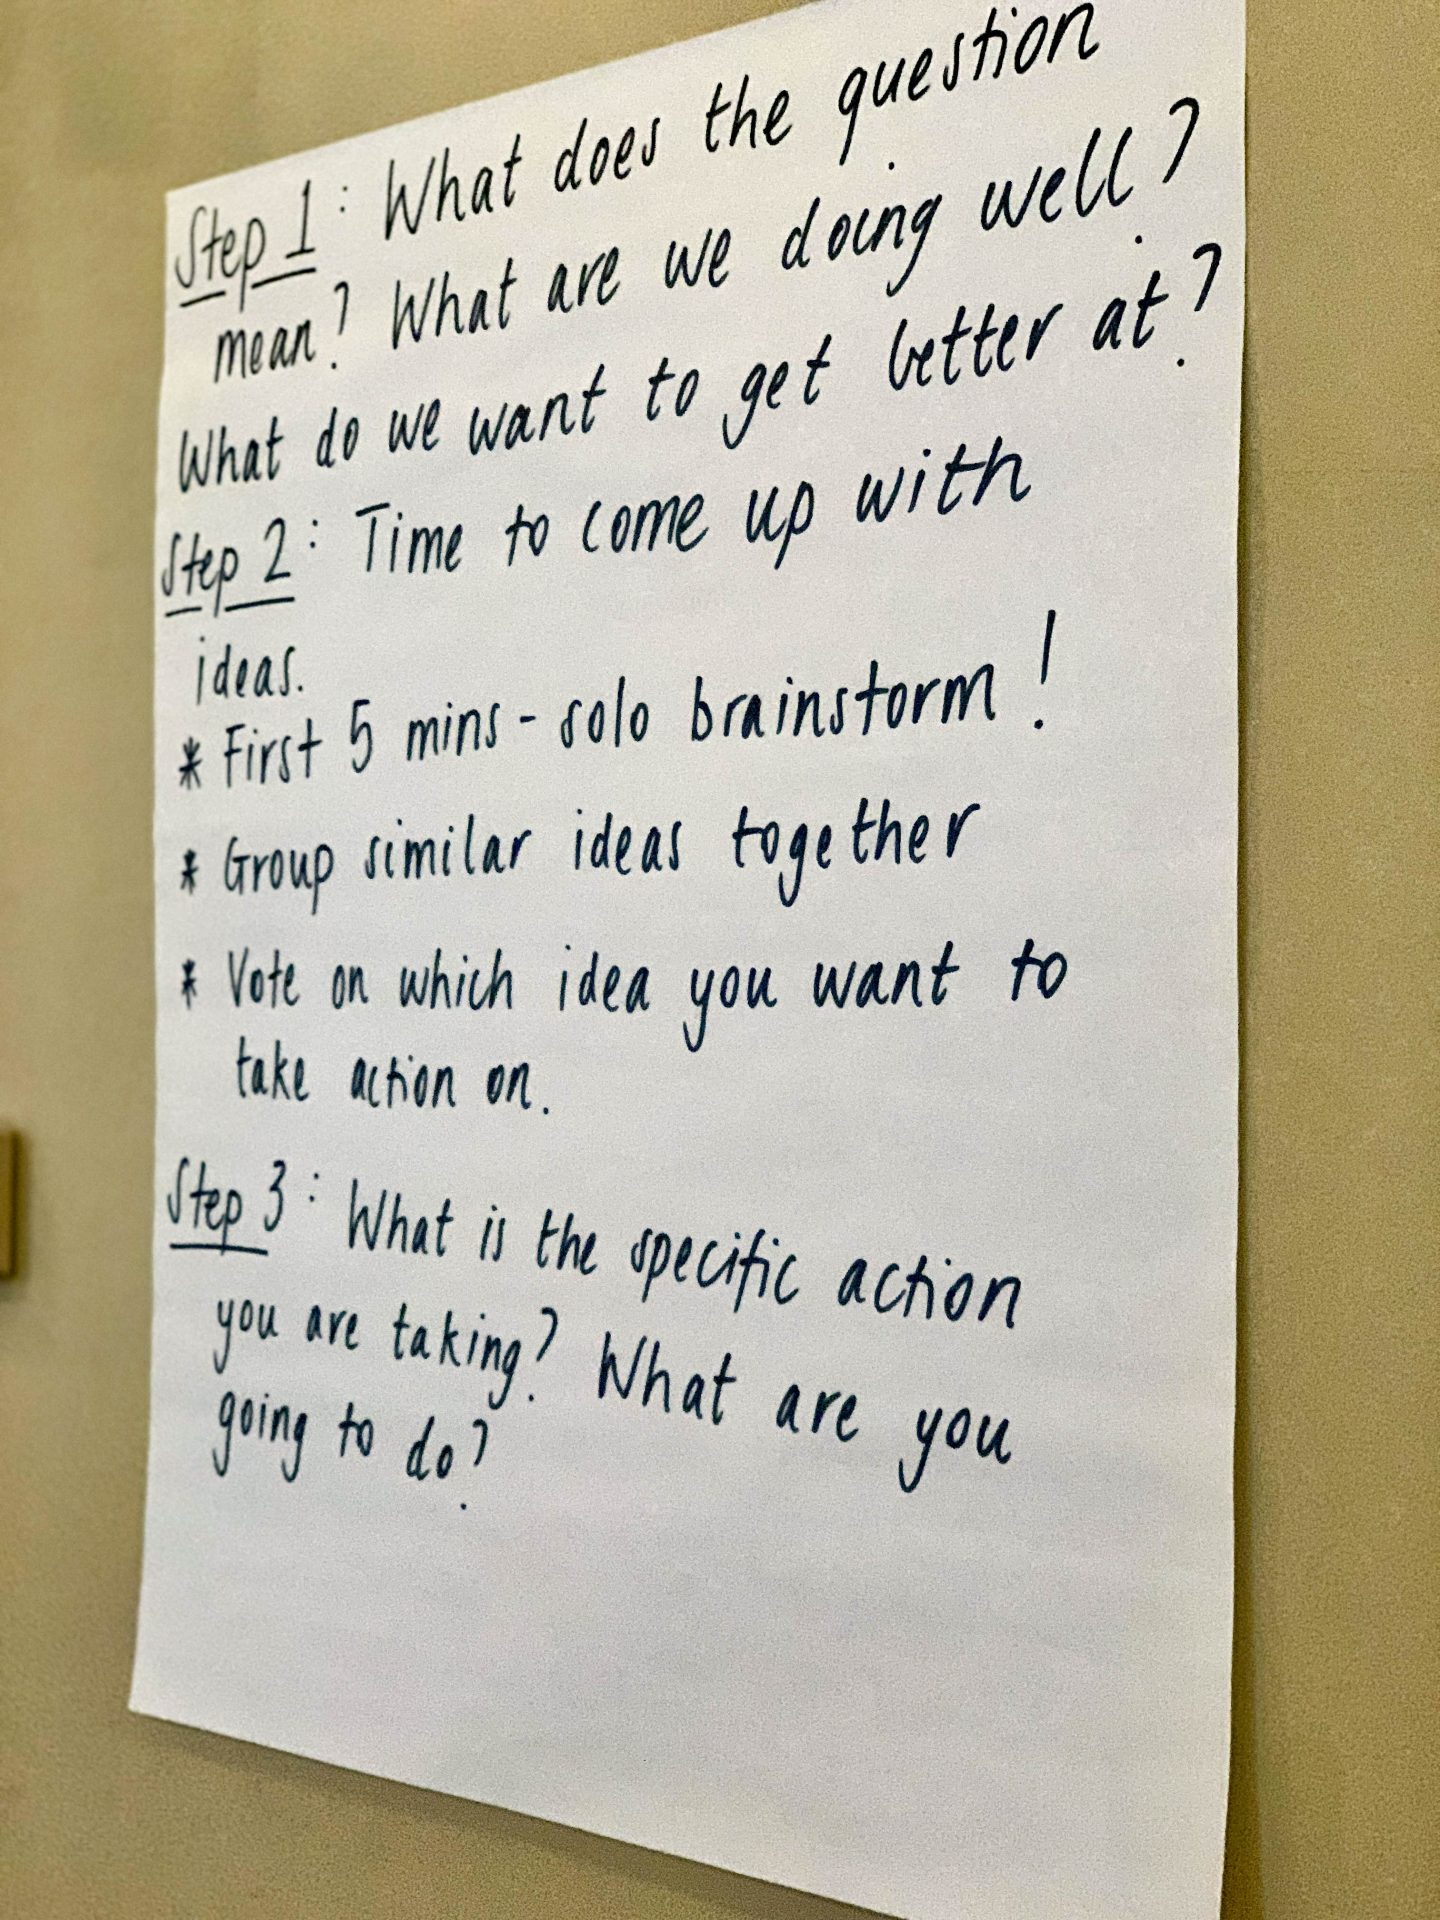 Step 1: What does the question
mean? What are we doing well?
What do we want to get better at?
Step 2: Time to come up with
ideas.
* First 5 mins - solo brainstorm!
* Group similar ideas together
* Vote on which idea you want to
take action on.
Step 3: What is the specific action
you are taking? What are you
going to do?